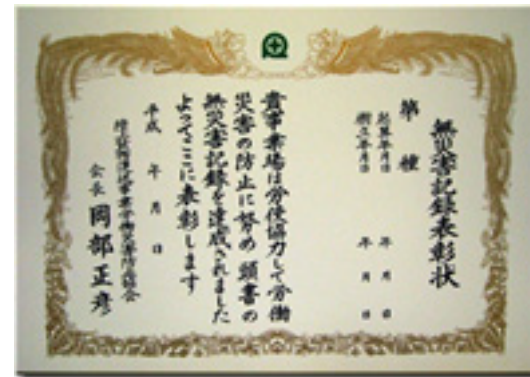 無災害記録表彰状
第 種
起算年月日 年 月 日
樹立年月日 年 月 日
貴事業場は労使協力して労働
災害の防止に努め 頭書の
無災害記録を達成されました
よってここに表彰します
平成 年 月 日
陸上貨物運送事業労働災害防止協会
会長 岡部正彦